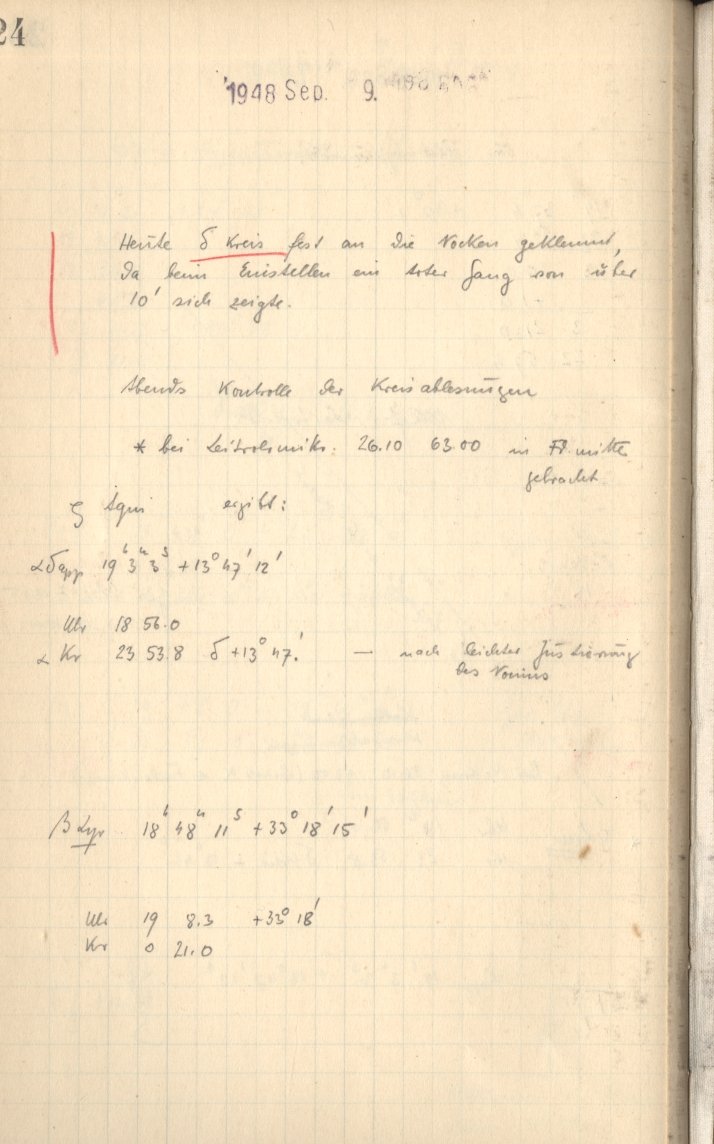 24
1948 Sep. 9.
Heute δ Kreis fest an die Nocken geklemmt,
da beim Einstellen ein toter Gang von über
10' sich zeigte.
Abends Kontrolle der Kreisablesungen
* bei Leitrohrmikr. 26.10 63.00 in F.mitte
gebracht
ζ Aqui ergibt:
αδapp 19ʰ 3ᵐ 3ˢ +13° 47' 12'
Uhr 18 56.0
α Kr 23 53.8 δ +13° 47.' — nach leichter Justierung
des Nonius
β Lyr 18ʰ 48ᵐ 11ˢ +33° 18' 15'
Uhr 19 8.3 +33° 18'
Kr 0 21.0